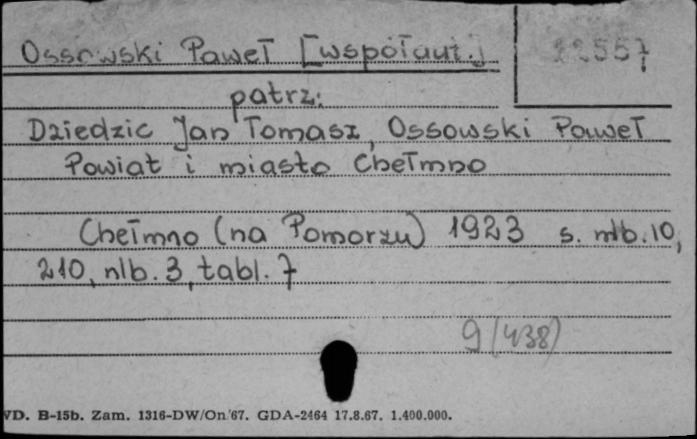 Ossowski Paweł [współaut.]
12557
patrz:
Dziedzic Jan Tomasz, Ossowski Paweł
Powiat i miasto Chełmno
Chełmno (na Pomorzu) 1923 s. nlb. 10,
210, nlb. 3, tabl. 7
9(438)
VD. B-15b. Zam. 1316-DW/On/67. GDA-2464 17.8.67. 1.400.000.